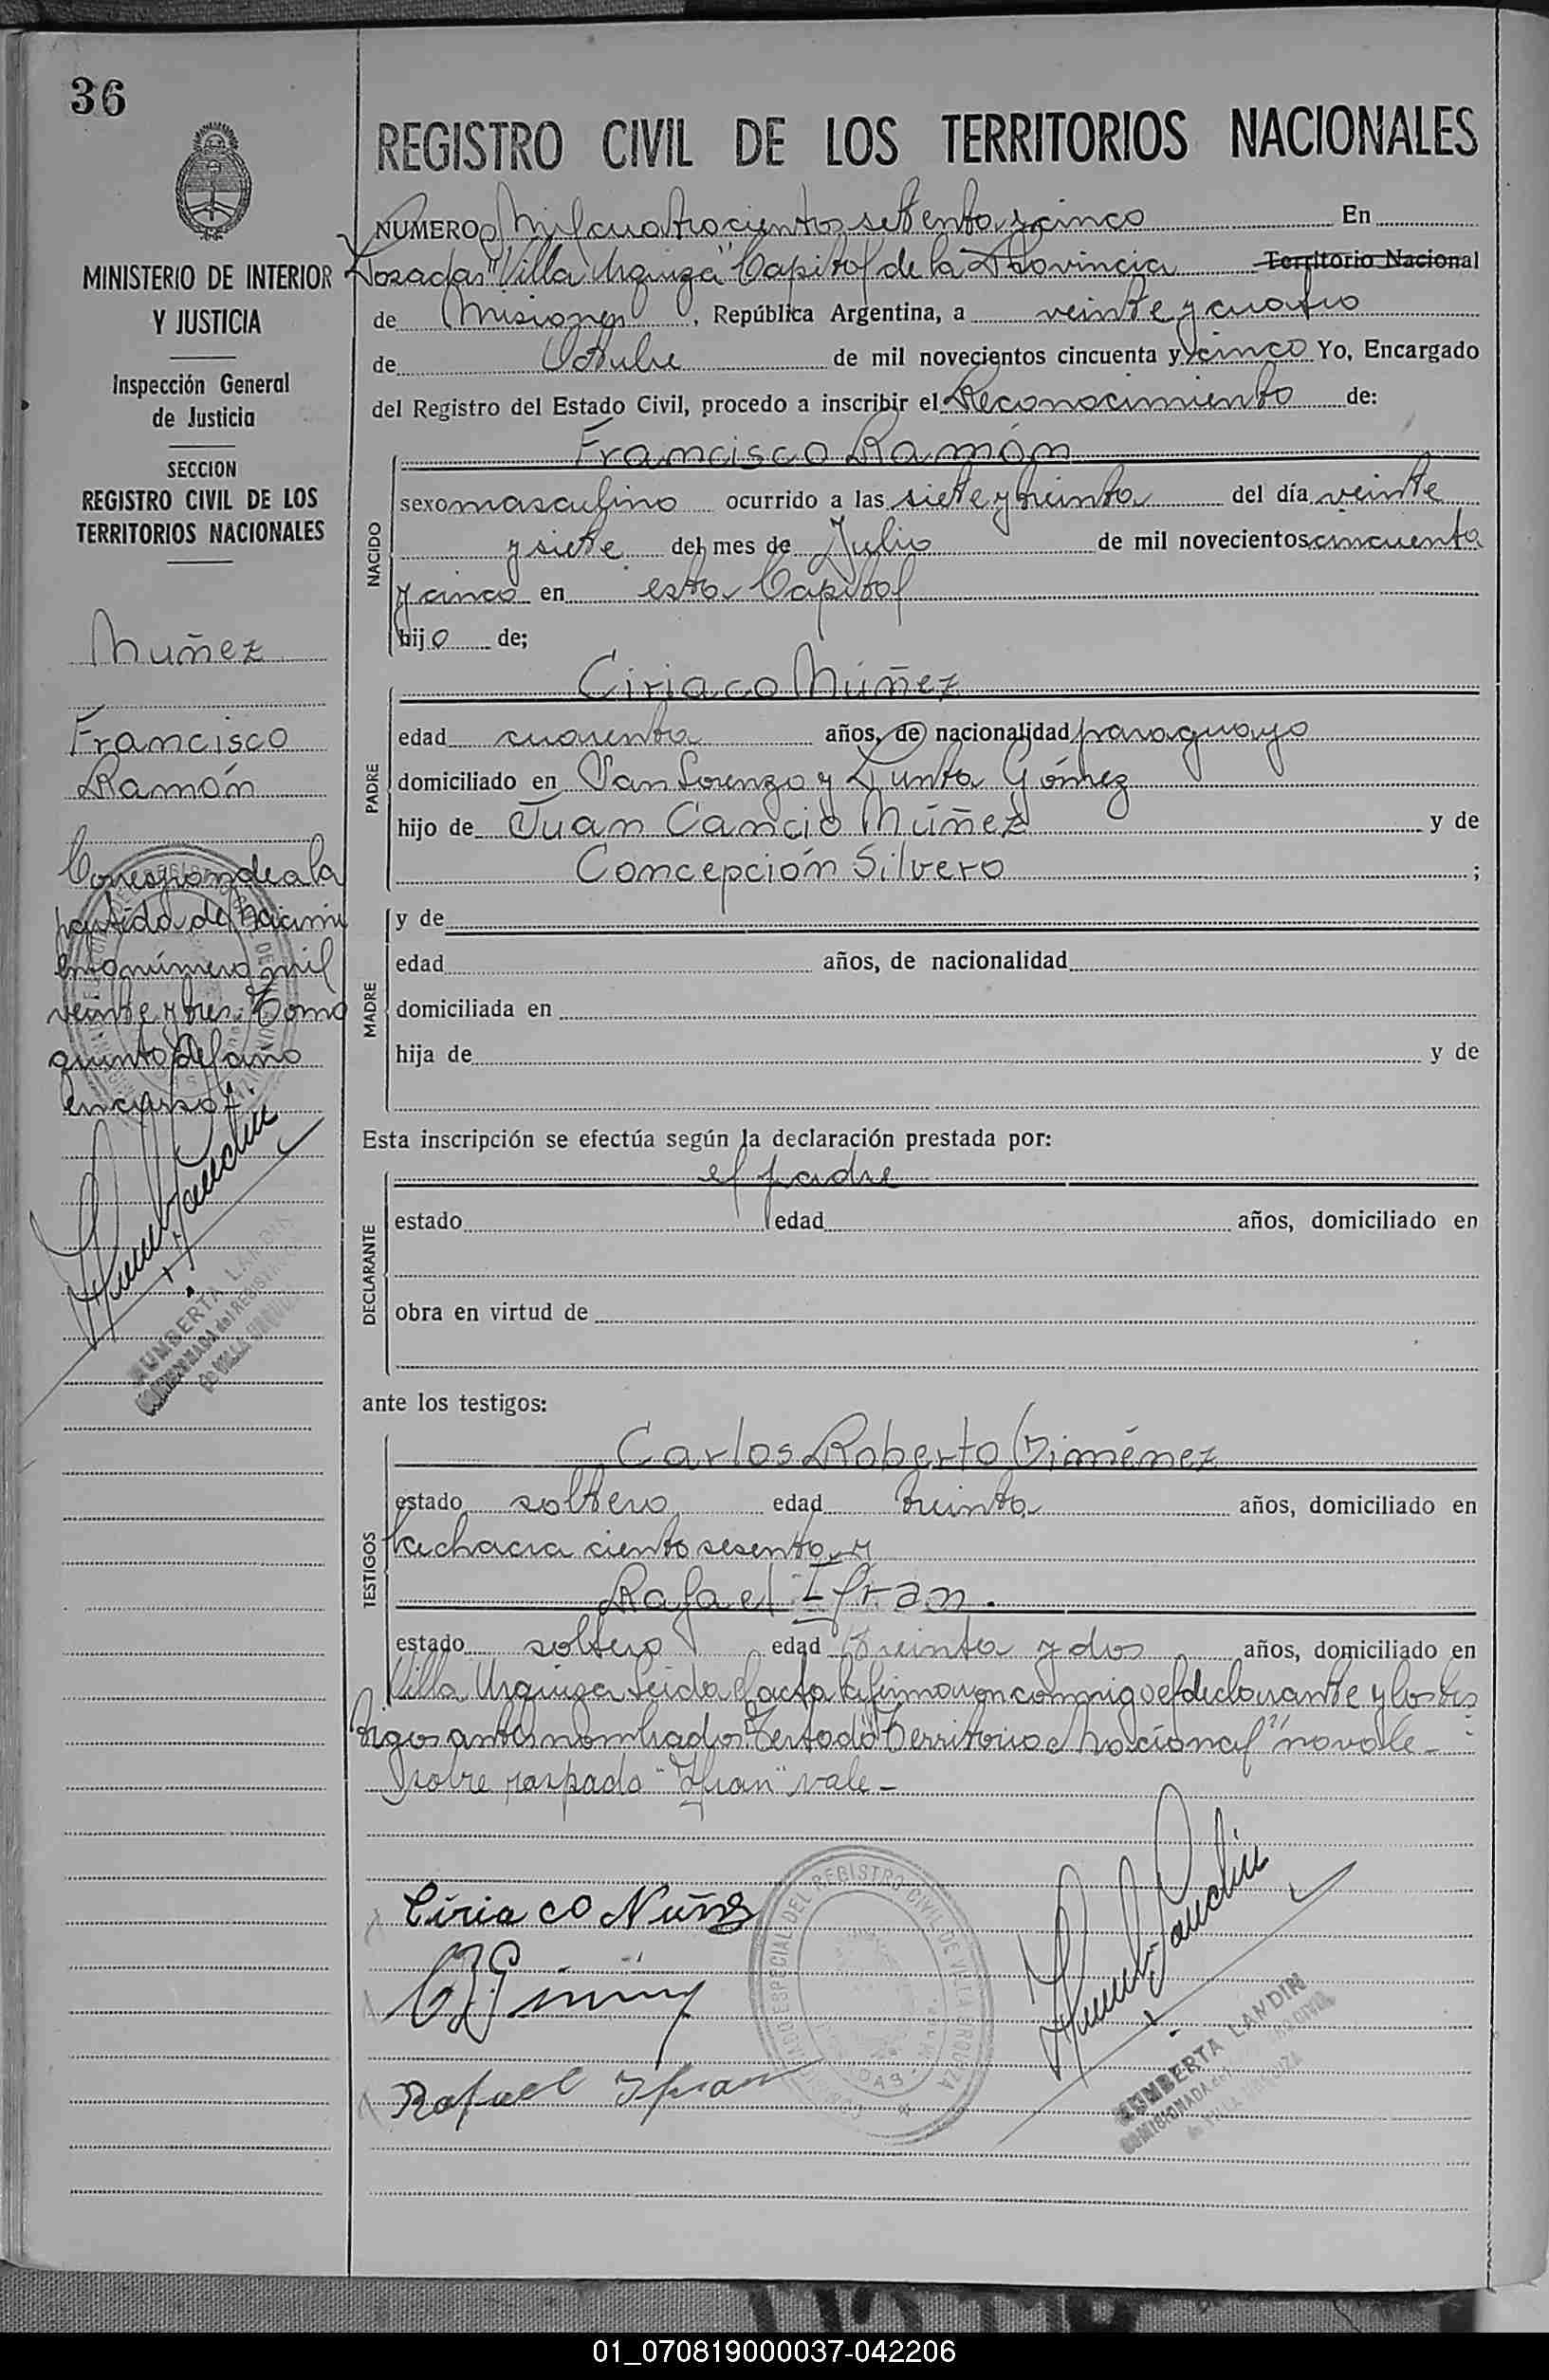 36
MINISTERIO DE INTERIOR
Y JUSTICIA
Inspección General
de Justicia
SECCION
REGISTRO CIVIL DE LOS
TERRITORIOS NACIONALES
Muñez
Francisco
Ramón
Corresponde a la
partida de Nacimi
ento número mil
veinte y tres. Tomo
quinto del año
en curso.
HUMBERTA LANDIN
COMISIONADA del REGISTRO
de VILLA URQUIZA
REGISTRO CIVIL DE LOS TERRITORIOS NACIONALES
NUMERO Mil cuatrocientos setenta y cinco En
Posadas "Villa Urquiza" Capital de la Provincia Territorio Nacional
de Misiones, República Argentina, a veinte y cuatro
de Octubre de mil novecientos cincuenta y cinco Yo, Encargado
del Registro del Estado Civil, procedo a inscribir el Reconocimiento de:
Francisco Ramón
NACIDO
sexo masculino ocurrido a las siete y treinta del día veinte
y siete del mes de Julio de mil novecientos cincuenta
y cinco en esta Capital
hijo de;
PADRE
Ciriaco Múñez
edad cuarenta años, de nacionalidad paraguayo
domiciliado en San Lorenzo y Punta Gómez
hijo de Juan Cancio Múñez y de
Concepción Silvero ;
MADRE
y de
edad años, de nacionalidad
domiciliada en
hija de y de
Esta inscripción se efectúa según la declaración prestada por:
el padre
DECLARANTE
estado edad años, domiciliado en
obra en virtud de
ante los testigos:
TESTIGOS
Carlos Roberto Giménez
estado soltero edad treinta años, domiciliado en
la chacra ciento sesenta y
Rafael Ifran.
estado soltero edad treinta y dos años, domiciliado en
Villa Urquiza Leida el acta la firmaron conmigo el declarante y los tes
tigos antes nombrados. Testado "Territorio Nacional" no vale-
Sobre raspado "Ifran" vale-
Ciriaco Nuñez
Rafael Ifran
REGISTRO CIVIL DE VILLA URQUIZA
HUMBERTA LANDIN
COMISIONADA del REGISTRO CIVIL
de VILLA URQUIZA
01_070819000037-042206